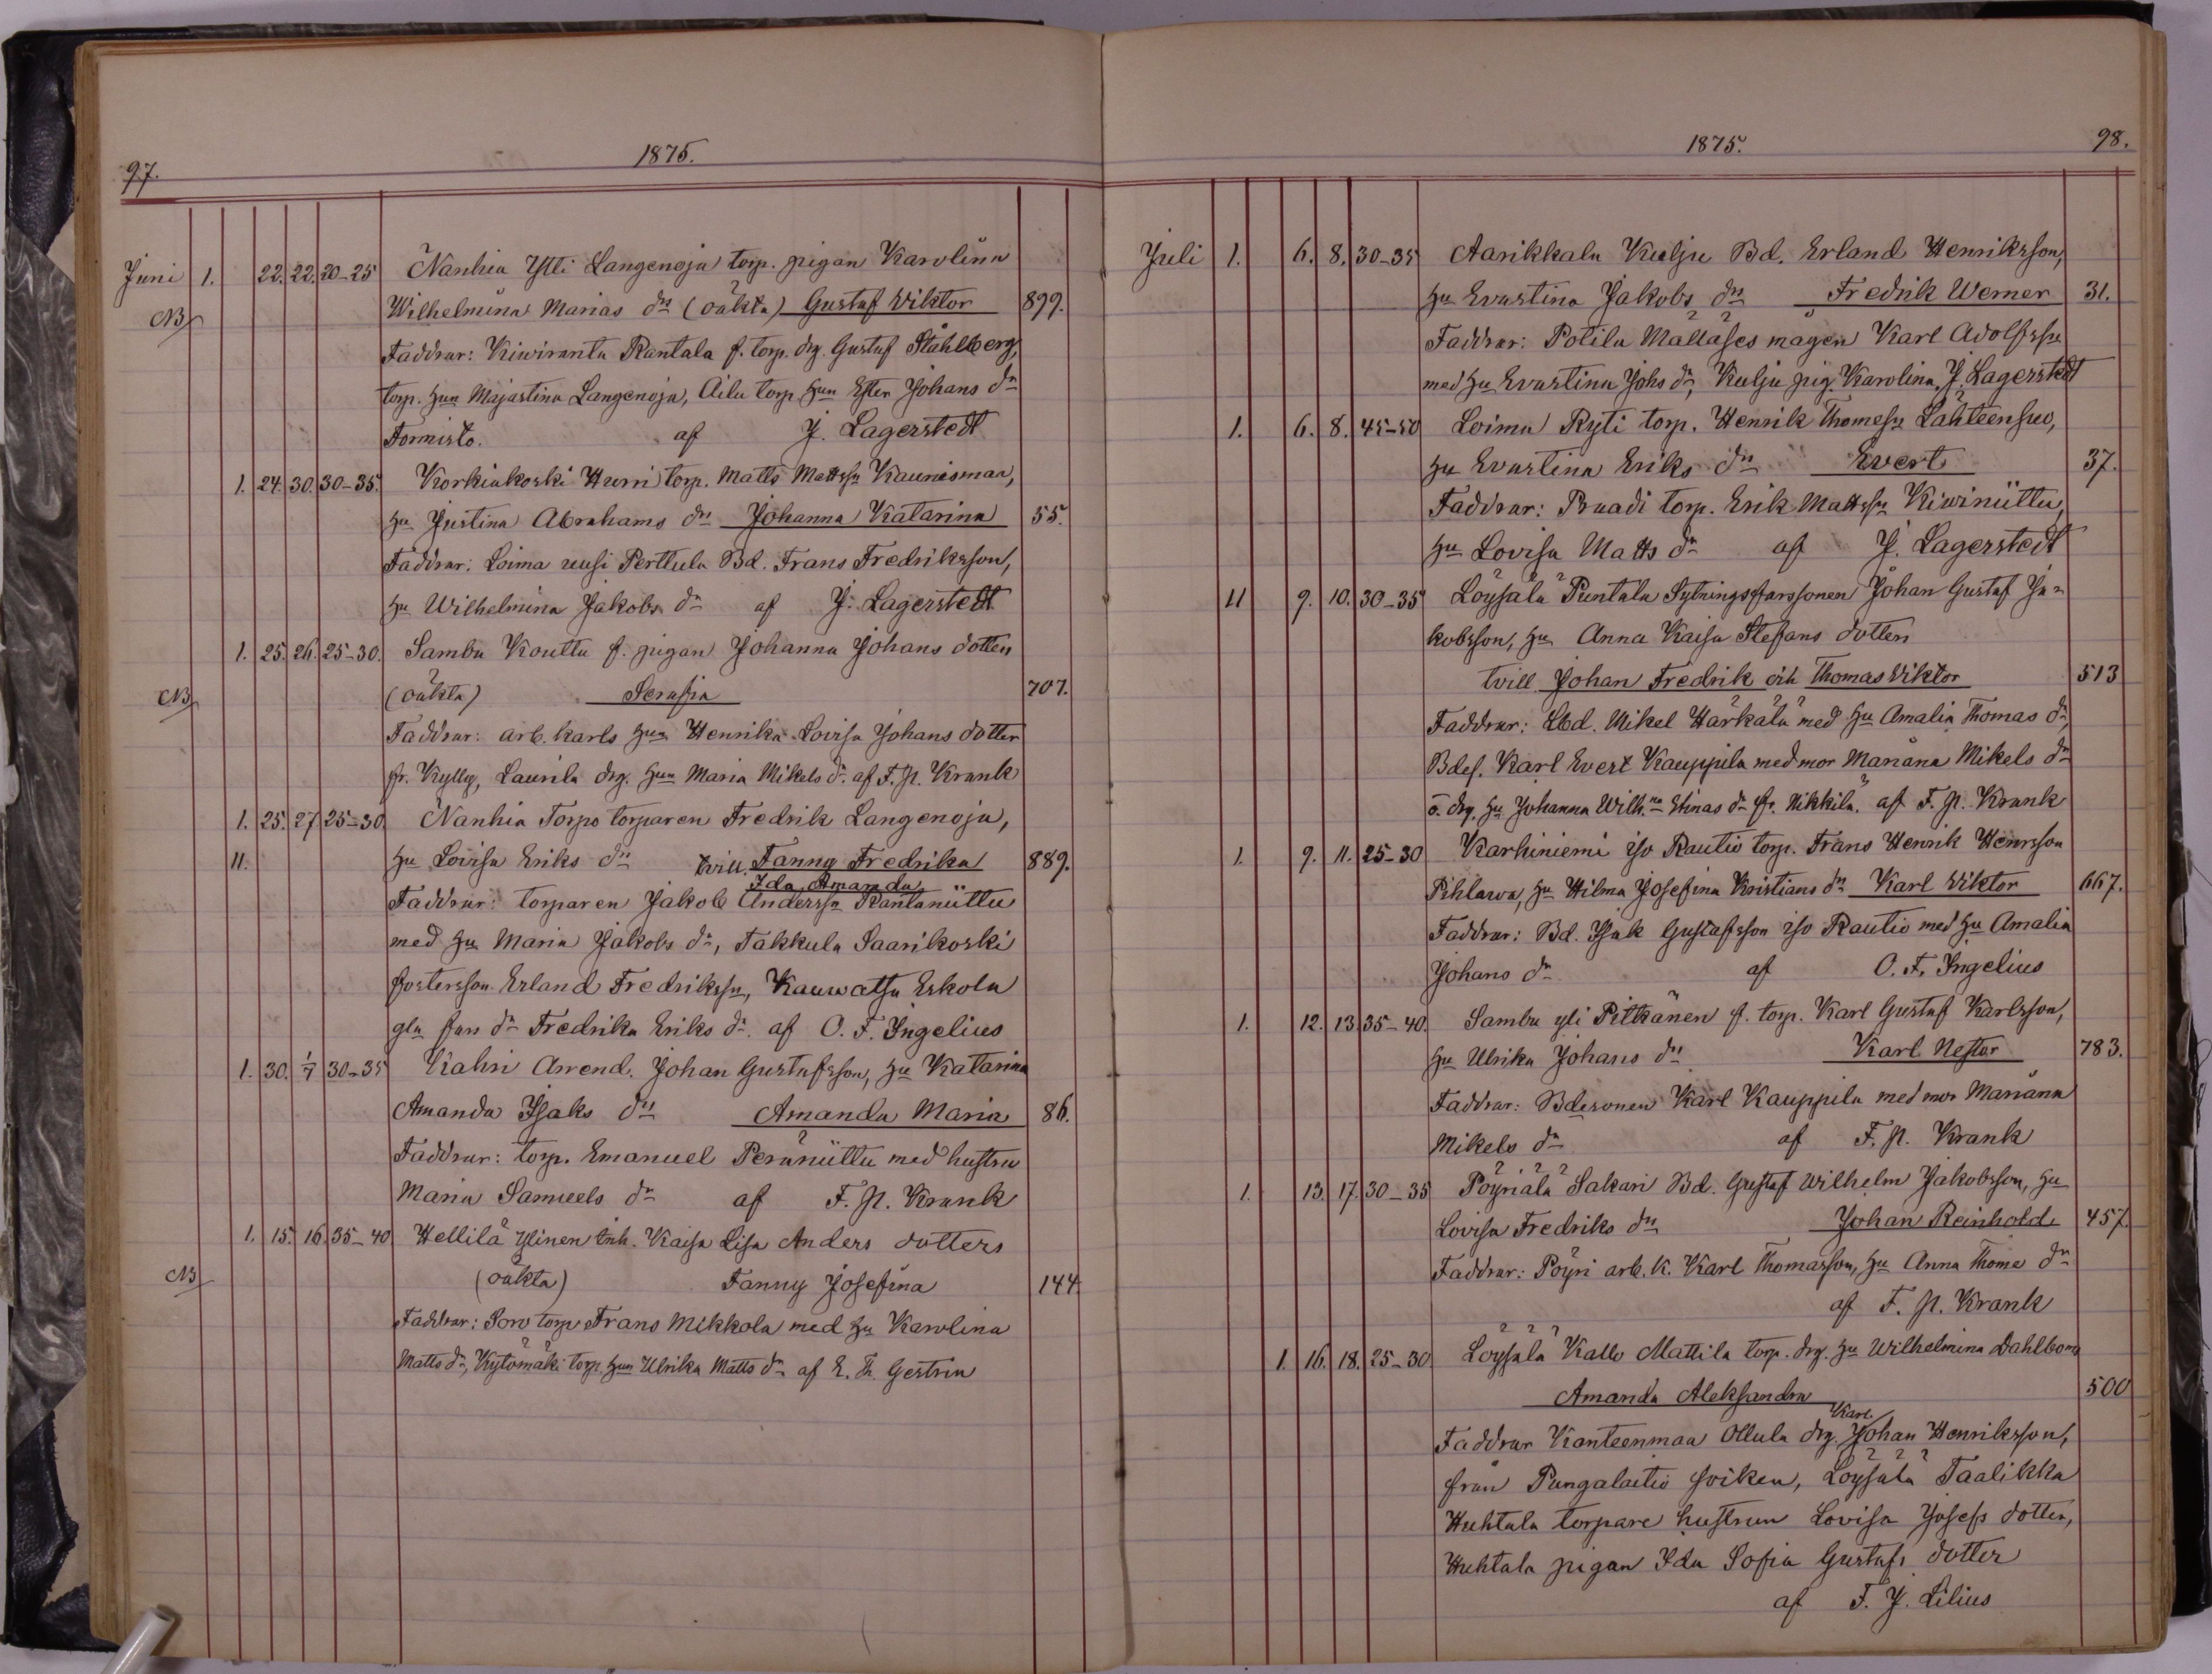 97.
1875.
Juni 1. 22. 22. 20-25 Nanhia Ylli Langenoja torp. pigan Karolina
NB Wilhelmina Marias dr (oäkta) Gustaf Viktor 899.
Faddrar: Kiwiranta Rantala f. torp. drg. Gustaf Ståhlberg,
torp. hun Majastina Langenoja, Ailu torp hun Ester Johans dr
Tormisto. af J. Lagerstedt
1. 24. 30. 30-35. Korkiakoski Hurri torp. Matts Mattssn Kaunismaa,
hu Justina Abrahams dr Johanna Katarina 55.
Faddrar: Loima uusi Perttula Bd. Frans Fredriksson,
hu Wilhelmina Jakobs dr af J. Lagerstedt
1. 25. 26. 25-30. Sambu Kouttu f. pigan Johanna Johans dotter
NB (oäkta) Serafia 707.
Faddrar: arb. karls hun Henrika Lovisa Johans dotter
fr. Kylly, Laurila drg. hun Maria Mikels dr af F. N. Krank
1. 25. 27. 25-30 Nanhia Torpo torparen Fredrik Langenoja,
11. hu Lovisa Eriks dr tvill. Fanny Fredrika 889.
Ida Amanda
Faddrar: torparen Jakob Anderssn Rantaniittu
med hu Maria Jakobs dr, Takkula Saarikoski
fosterson Erland Fredrikssn, Kauwatsa Eskola
gla fan dr Fredrika Eriks dr af O. F. Ingelius
1. 30. 1/7 30-35 Kahri Arrend. Johan Gustafsson, hu Katarina
Amanda Isaks dr Amanda Maria 86.
Faddrar: torp. Emanuel Peräniittu med hustru
Maria Samuels dr af F. N. Krank
1. 15. 16. 35-40 Hellilä Ylinen inh. Kaisa Lisa Anders dotters
NB (oäkta) Fanny Josefina 144.
Faddrar: Soro torp Frans Mikkola med hu Karolina
Matts dr, Kytömäki torp. hun Ulrika Matts dr af E. Th. Gestrin
1875. 98.
Juli 1. 6. 8. 30-35 Aarikkala Kulju Bd. Erland Henriksson,
hu Evastina Jakobs dr Fredrik Werner 31.
Faddrar: Potila Mällases mågen Karl Adolfssn
med hu Evastina Johs dr, Kulju pig. Karolina, J. Lagerstedt
1. 6. 8. 45-50 Loima Ryti torp. Henrik Thomessn Lähteensuo,
hu Evastina Eriks dr Evert 37.
Faddrar: Praadi torp. Erik Mattssn Kiwiniittu,
hu Lovisa Matts dr af J. Lagerstedt
11 9. 10. 30-35 Löysälä Puntala Sytningsfarssonen Johan Gustaf Ja-
kobsson, hu Anna Kaisa Stefans dotter
tvill Johan Fredrik och Thomas Viktor 513
Faddrar: Lbd. Mikel Härkälä med hu Amalia Thomas dr,
Bdes. Karl Evert Kauppila med mor Mariana Mikels dr
o. drg. hu Johanna Wilh.na Stinas dr fr. Nikkilä. af F. N. Krank
1. 9. 11. 25-30 Karhiniemi iso Rautio torp. Frans Henrik Henrsson
Pihlawa, hu Hilma Josefina Kristians dr Karl Viktor 667.
Faddrar: Bd. Isak Gustafsson iso Rautio med hu Amalia
Johans dr af O. F. Ingelius
1. 12. 13. 35-40. Sambu yli Pitkänen f. torp. Karl Gustaf Karlsson,
hu Ulrika Johans dr Karl Nestor 783.
Faddrar: Bdesonen Karl Kauppila med mor Mariana
Mikels dr af F. N. Krank
1. 13. 17. 30-35 Pöyriälä Sakari Bd. Gustaf Wilhelm Jakobsson, hu
Lovisa Fredriks dr Johan Reinhold 457.
Faddrar: Pöyri arb. k. Karl Thomasson, hu Anna Thoma dr
af F. N. Krank
1. 16. 18. 25-30 Löysälä Kallo Mattila torp. drg. hu Wilhelmina Dahlbom
Amanda Aleksandra 500
Karl
Faddrar Kanteenmaa Ollula drg. Johan Henriksson,
från Pungalaitio sviken, Löysälä Taalikka
Huhtala torpare hustrun Lovisa Josefs dotter,
Huhtala pigan Ida Sofia Gustafs dotter
af F. J. Lilius